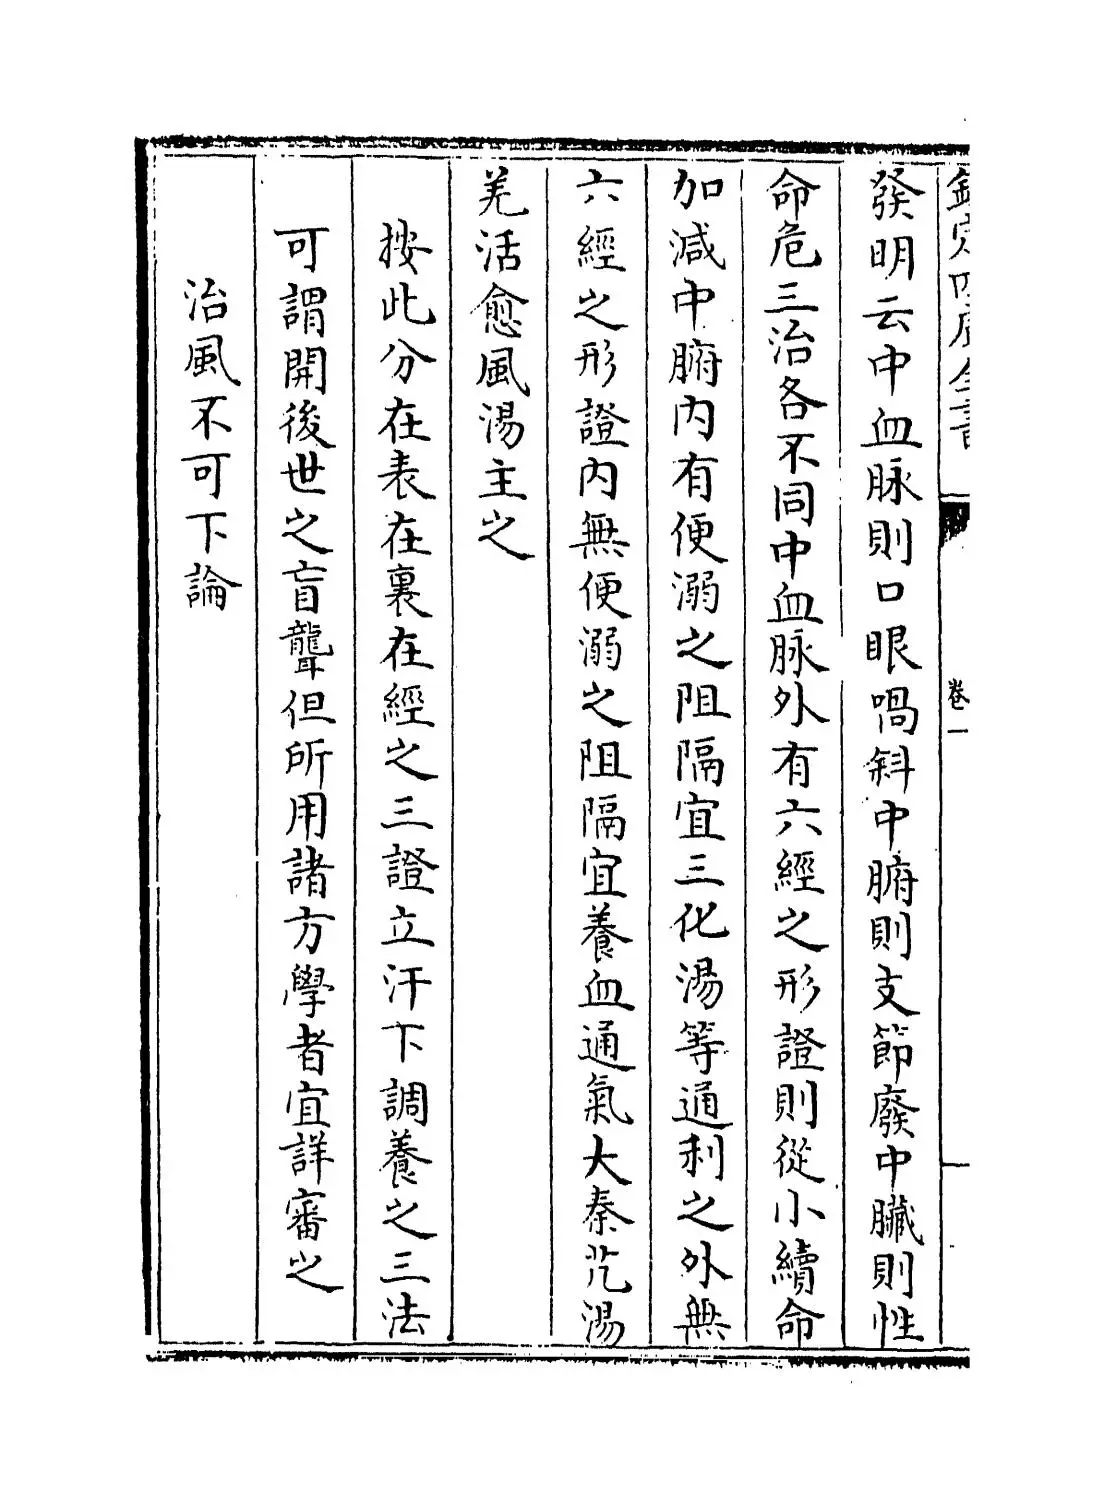 欽定四庫全書
卷一
發明云中血脉則口眼喎斜中腑則支節廢中臟則性
命危三治各不同中血脉外有六經之形證則從小續命
加減中腑内有便溺之阻隔宜三化湯等通利之外無
六經之形證内無便溺之阻隔宜養血通氣大秦艽湯
羌活愈風湯主之
按此分在表在裏在經之三證立汗下調養之三法
可謂開後世之盲聾但所用諸方學者宜詳審之
治風不可下論